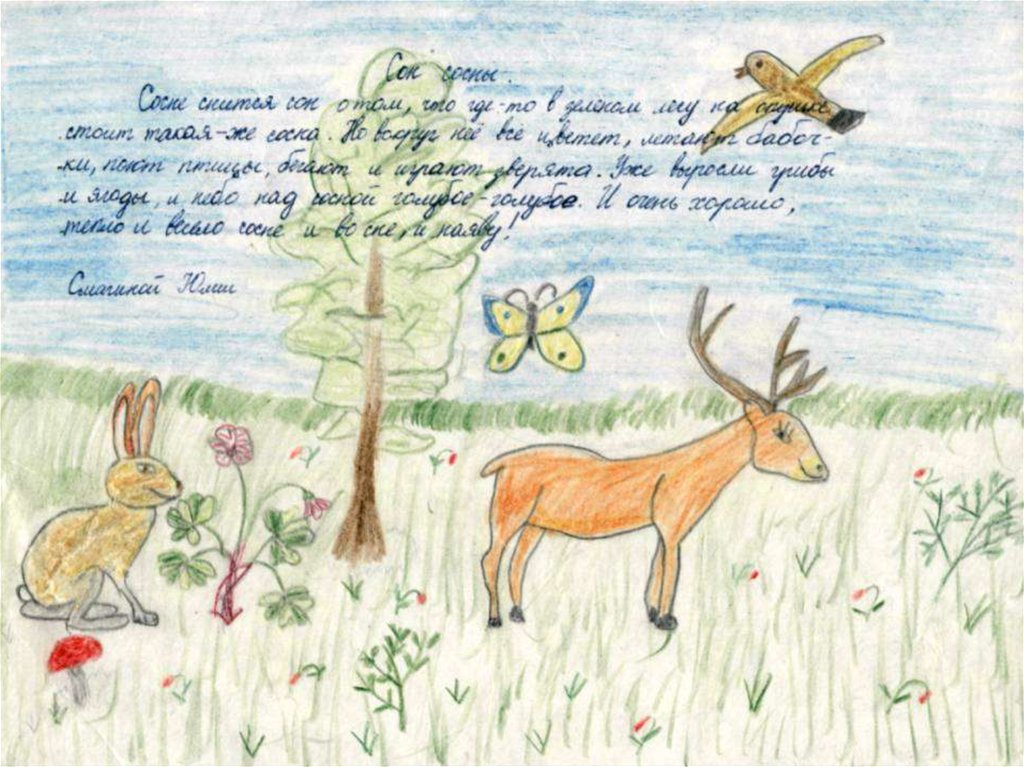 Сон сосны.
Сосне снится сон о том, что где-то в зелёном лесу на опушке
стоит такая-же сосна. Но вокруг неё всё цветет, летают бабоч-
ки, поют птицы, бегают и играют зверята. Уже выросли грибы
и ягоды, и небо над сосной голубое-голубое. И очень хорошо,
тепло и весело сосне и во сне, и наяву!
Смагиной Юлии